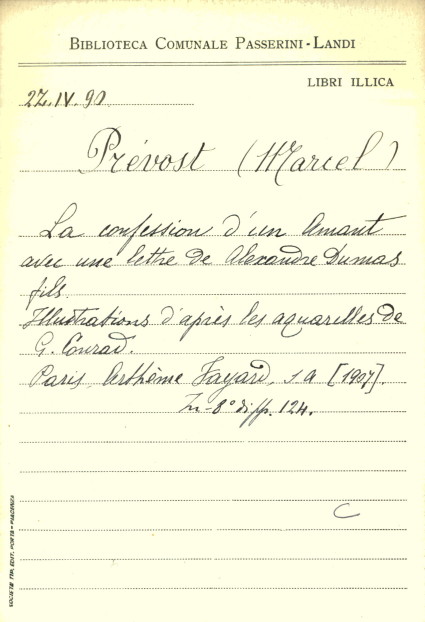 BIBLIOTECA COMUNALE PASSERINI-LANDI
LIBRI ILLICA
2Z.IV.90
Prévost (Marcel)
La confession d'un Amant
avec une lettre de Alexandre Dumas
fils.
Illustrations d'après les aquarelles de
G. Conrad.
Paris, Arthème Fayard, s a [1907].
In-8° di pp. 124.
C
SOCIETÀ TIP. EDIT. PORTA - PIACENZA